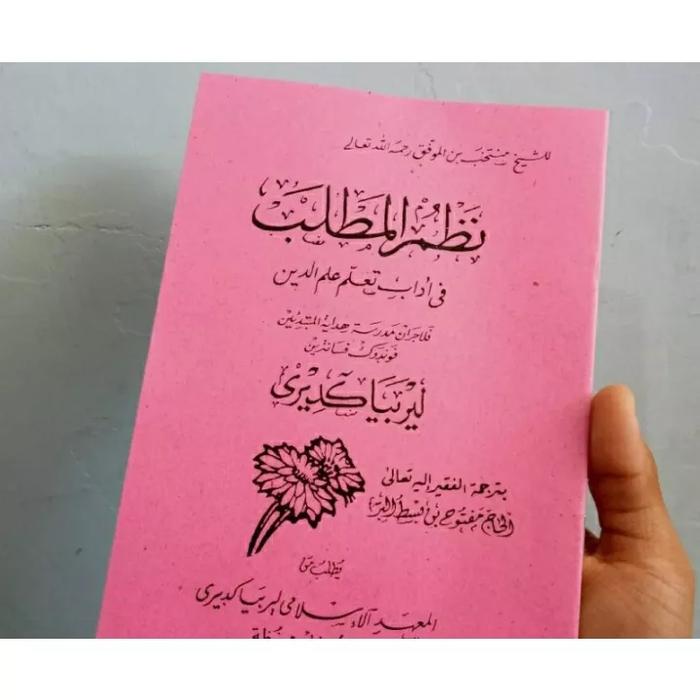 للشيخ منتخب بن الموفق رحمه الله تعالى
نَظْمُ المَطْلَبْ
فى اداب تعلم علم الدين
فلاجران مدرسة هداية المبتدئين
فوندوك فسانترين
ليربيا كديرى
بترجمة الفقير اليه تعالى
الحاج مفتوح بن بسط البر
يطلب من
المعهد الاسلامى ليربيا كديرى